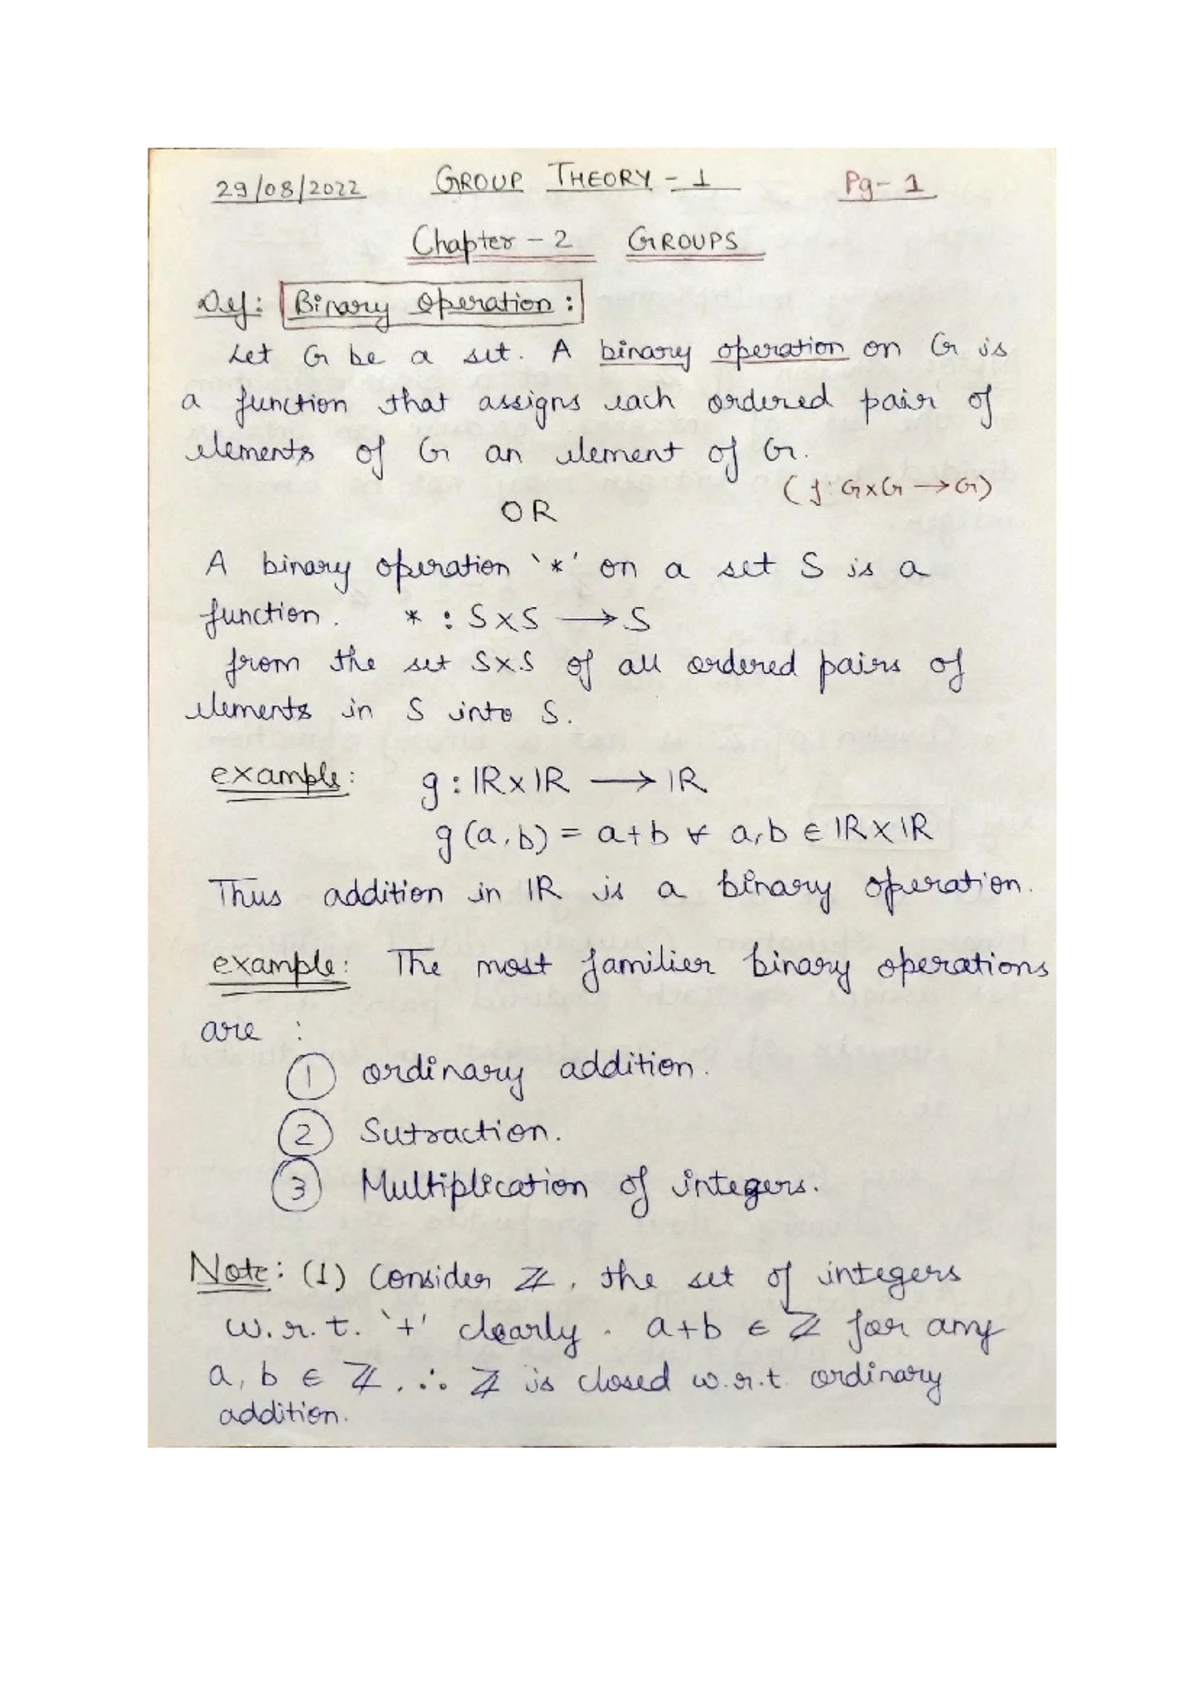 29/08/2022 GROUP THEORY - 1 Pg- 1
Chapter - 2 GROUPS
Def: Binary Operation :
Let G be a set. A binary operation on G is
a function that assigns each ordered pair of
elements of G an element of G.
(f: G×G → G)
OR
A binary operation '*' on a set S is a
function. * : S×S → S
from the set S×S of all ordered pairs of
elements in S into S.
example: g : ℝ×ℝ → ℝ
g(a,b) = a+b ∀ a,b ∈ ℝ×ℝ
Thus addition in ℝ is a binary operation.
example: The most familier binary operations
are :
① ordinary addition.
② Sutraction.
③ Multiplication of integers.
Note: (1) Consider ℤ, the set of integers
w.r.t. '+' clearly. a+b ∈ ℤ for any
a, b ∈ ℤ. ∴ ℤ is closed w.r.t. ordinary
addition.